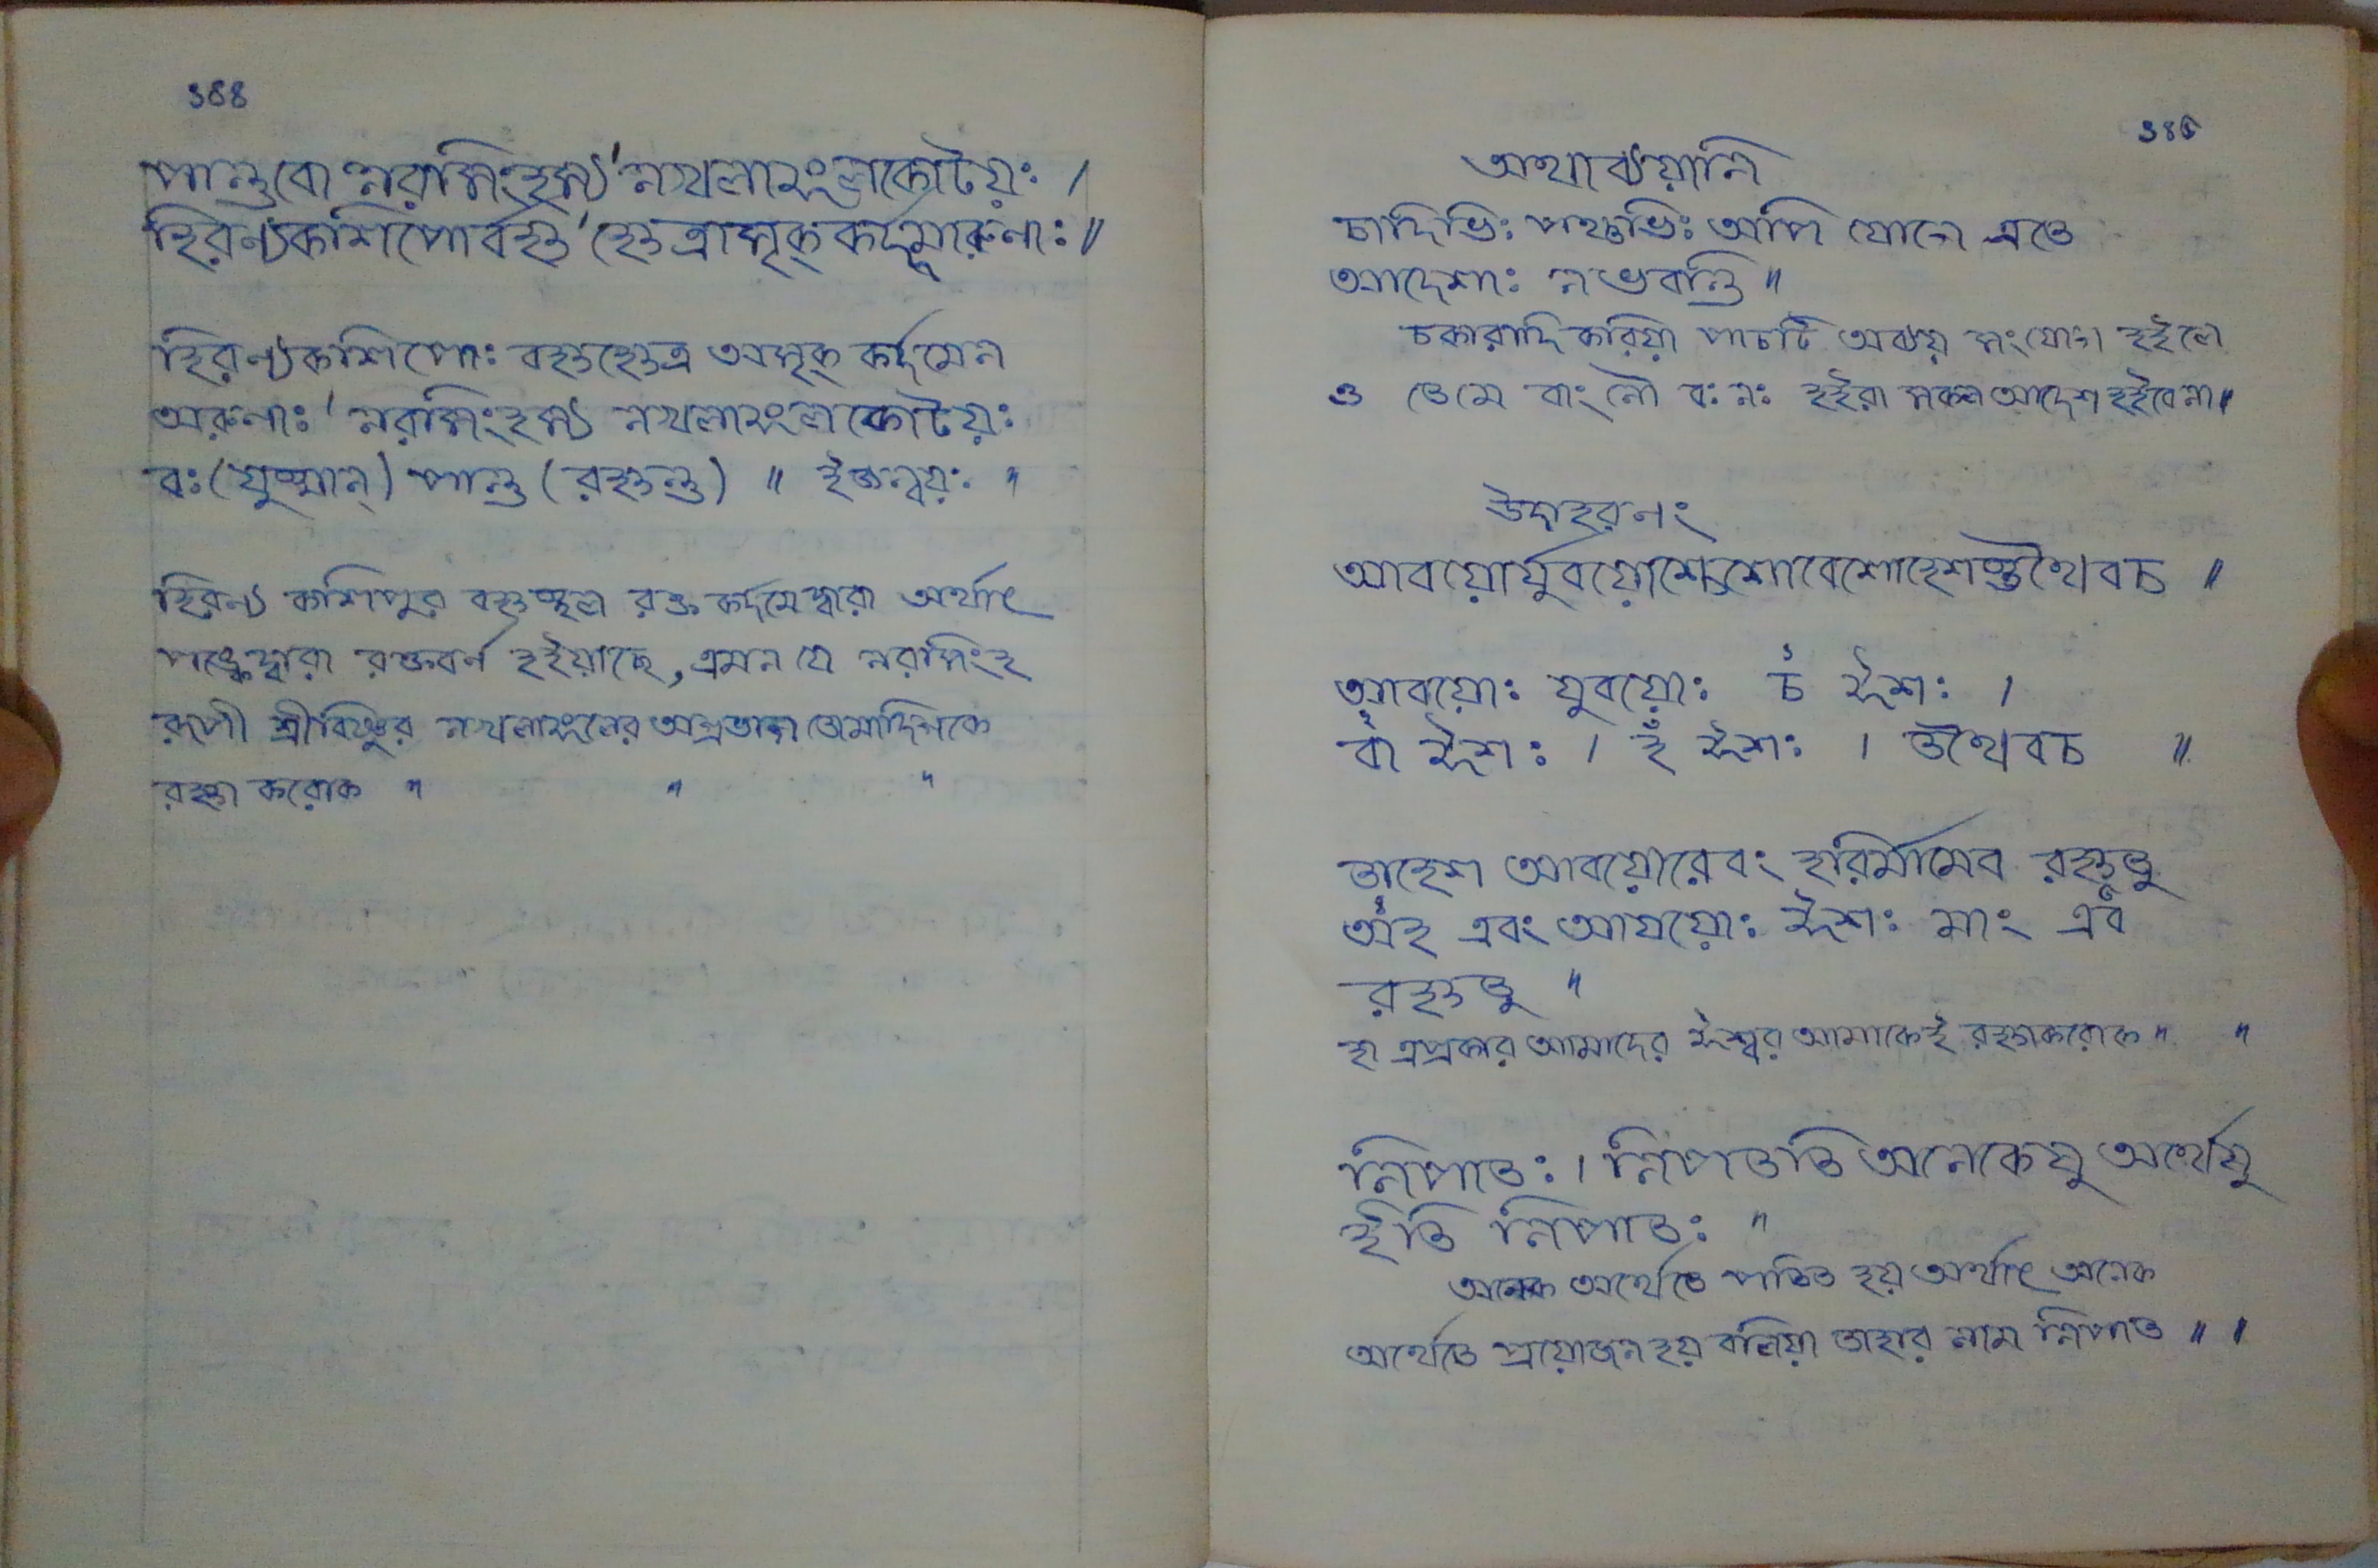 ১৪৪
পান্তুবো নরসিংহস্য নখলাঙ্গলকোটয়ঃ ।
হিরণ্যকশিপোর্বক্ষ ক্ষেত্রাসৃক্ কর্দ্দমারুণাঃ ॥
হিরণ্যকশিপোঃ বক্ষক্ষেত্র অসৃক্ কর্দ্দমেন
অরুণাঃ নরসিংহস্য নখলাঙ্গলকোটয়ঃ
বঃ (যুষ্মান্) পান্তু (রক্ষন্তু) ॥ ইত্যন্বয়ঃ ॥
হিরণ্য কশিপুর বক্ষস্থল রক্ত কর্দমেদ্বারা অর্থাৎ
পঙ্কেদ্বারা রক্তবর্ণ হইয়াছে, এমন যে নরসিংহ
রূপী শ্রীবিষ্ণুর নখলাঙ্গলের অগ্রভাগ তোমাদিগকে
রক্ষা করোক ॥ ॥ ॥
১৪৫
অথাব্যয়ানি
চাদিভিঃ পঞ্চভিঃ অপি যোগে এতে
আদেশাঃ নভবন্তি ॥
চকারাদি করিয়া পাচটি অব্যয় সংযোগ হইলে
ও তেমে বাংনৌ বঃ নঃ ইইরা সকল আদেশ হইবেনা॥
উদাহরণং
আবয়োর্যুবয়োশ্চেশোবেশোহেশস্তথৈবচ ॥
আবয়োঃ যুবয়োঃ চ ঈশঃ ।
বা ঈশঃ । হ ঈশঃ । তথৈবচ ॥
অহেশ আবয়োরেবং হরির্মামেব রক্ষতু
অহ এবং আবয়োঃ ঈশঃ মাং এব
রক্ষতু ॥
হা এপ্রকার আমাদের ঈশ্বর আমাকেই রক্ষাকরোক ॥ ॥
নিপাতঃ । নিপততি অনেকেষু অর্থেষু
ইতি নিপাতঃ ॥
অনেক অর্থেতে পতিত হয় অর্থাৎ অনেক
অর্থেতে প্রয়োজন হয় বলিয়া তাহার নাম নিপাত ॥ ॥